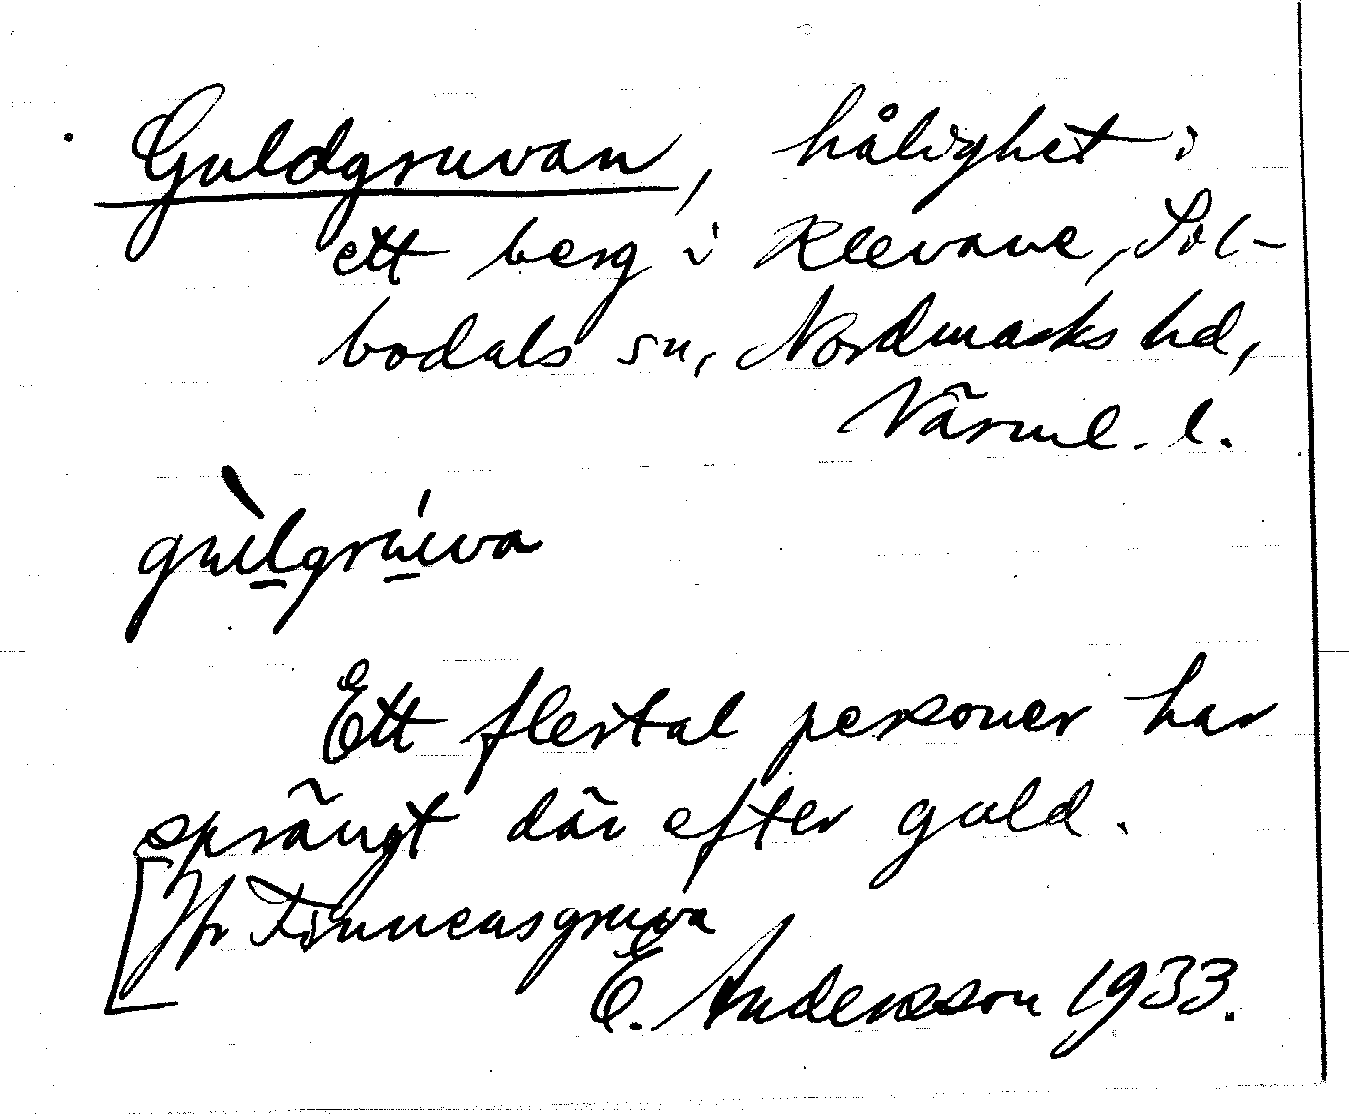 Guldgruvan, hålighet i
ett berg i Klevane, Sil-
bodals sn, Nordmarks hd,
Värml. l.
gùllgrúvva
Ett flertal personer har
sprängt där efter guld.
[Jfr Finnensgruva
E. Andersson 1933.